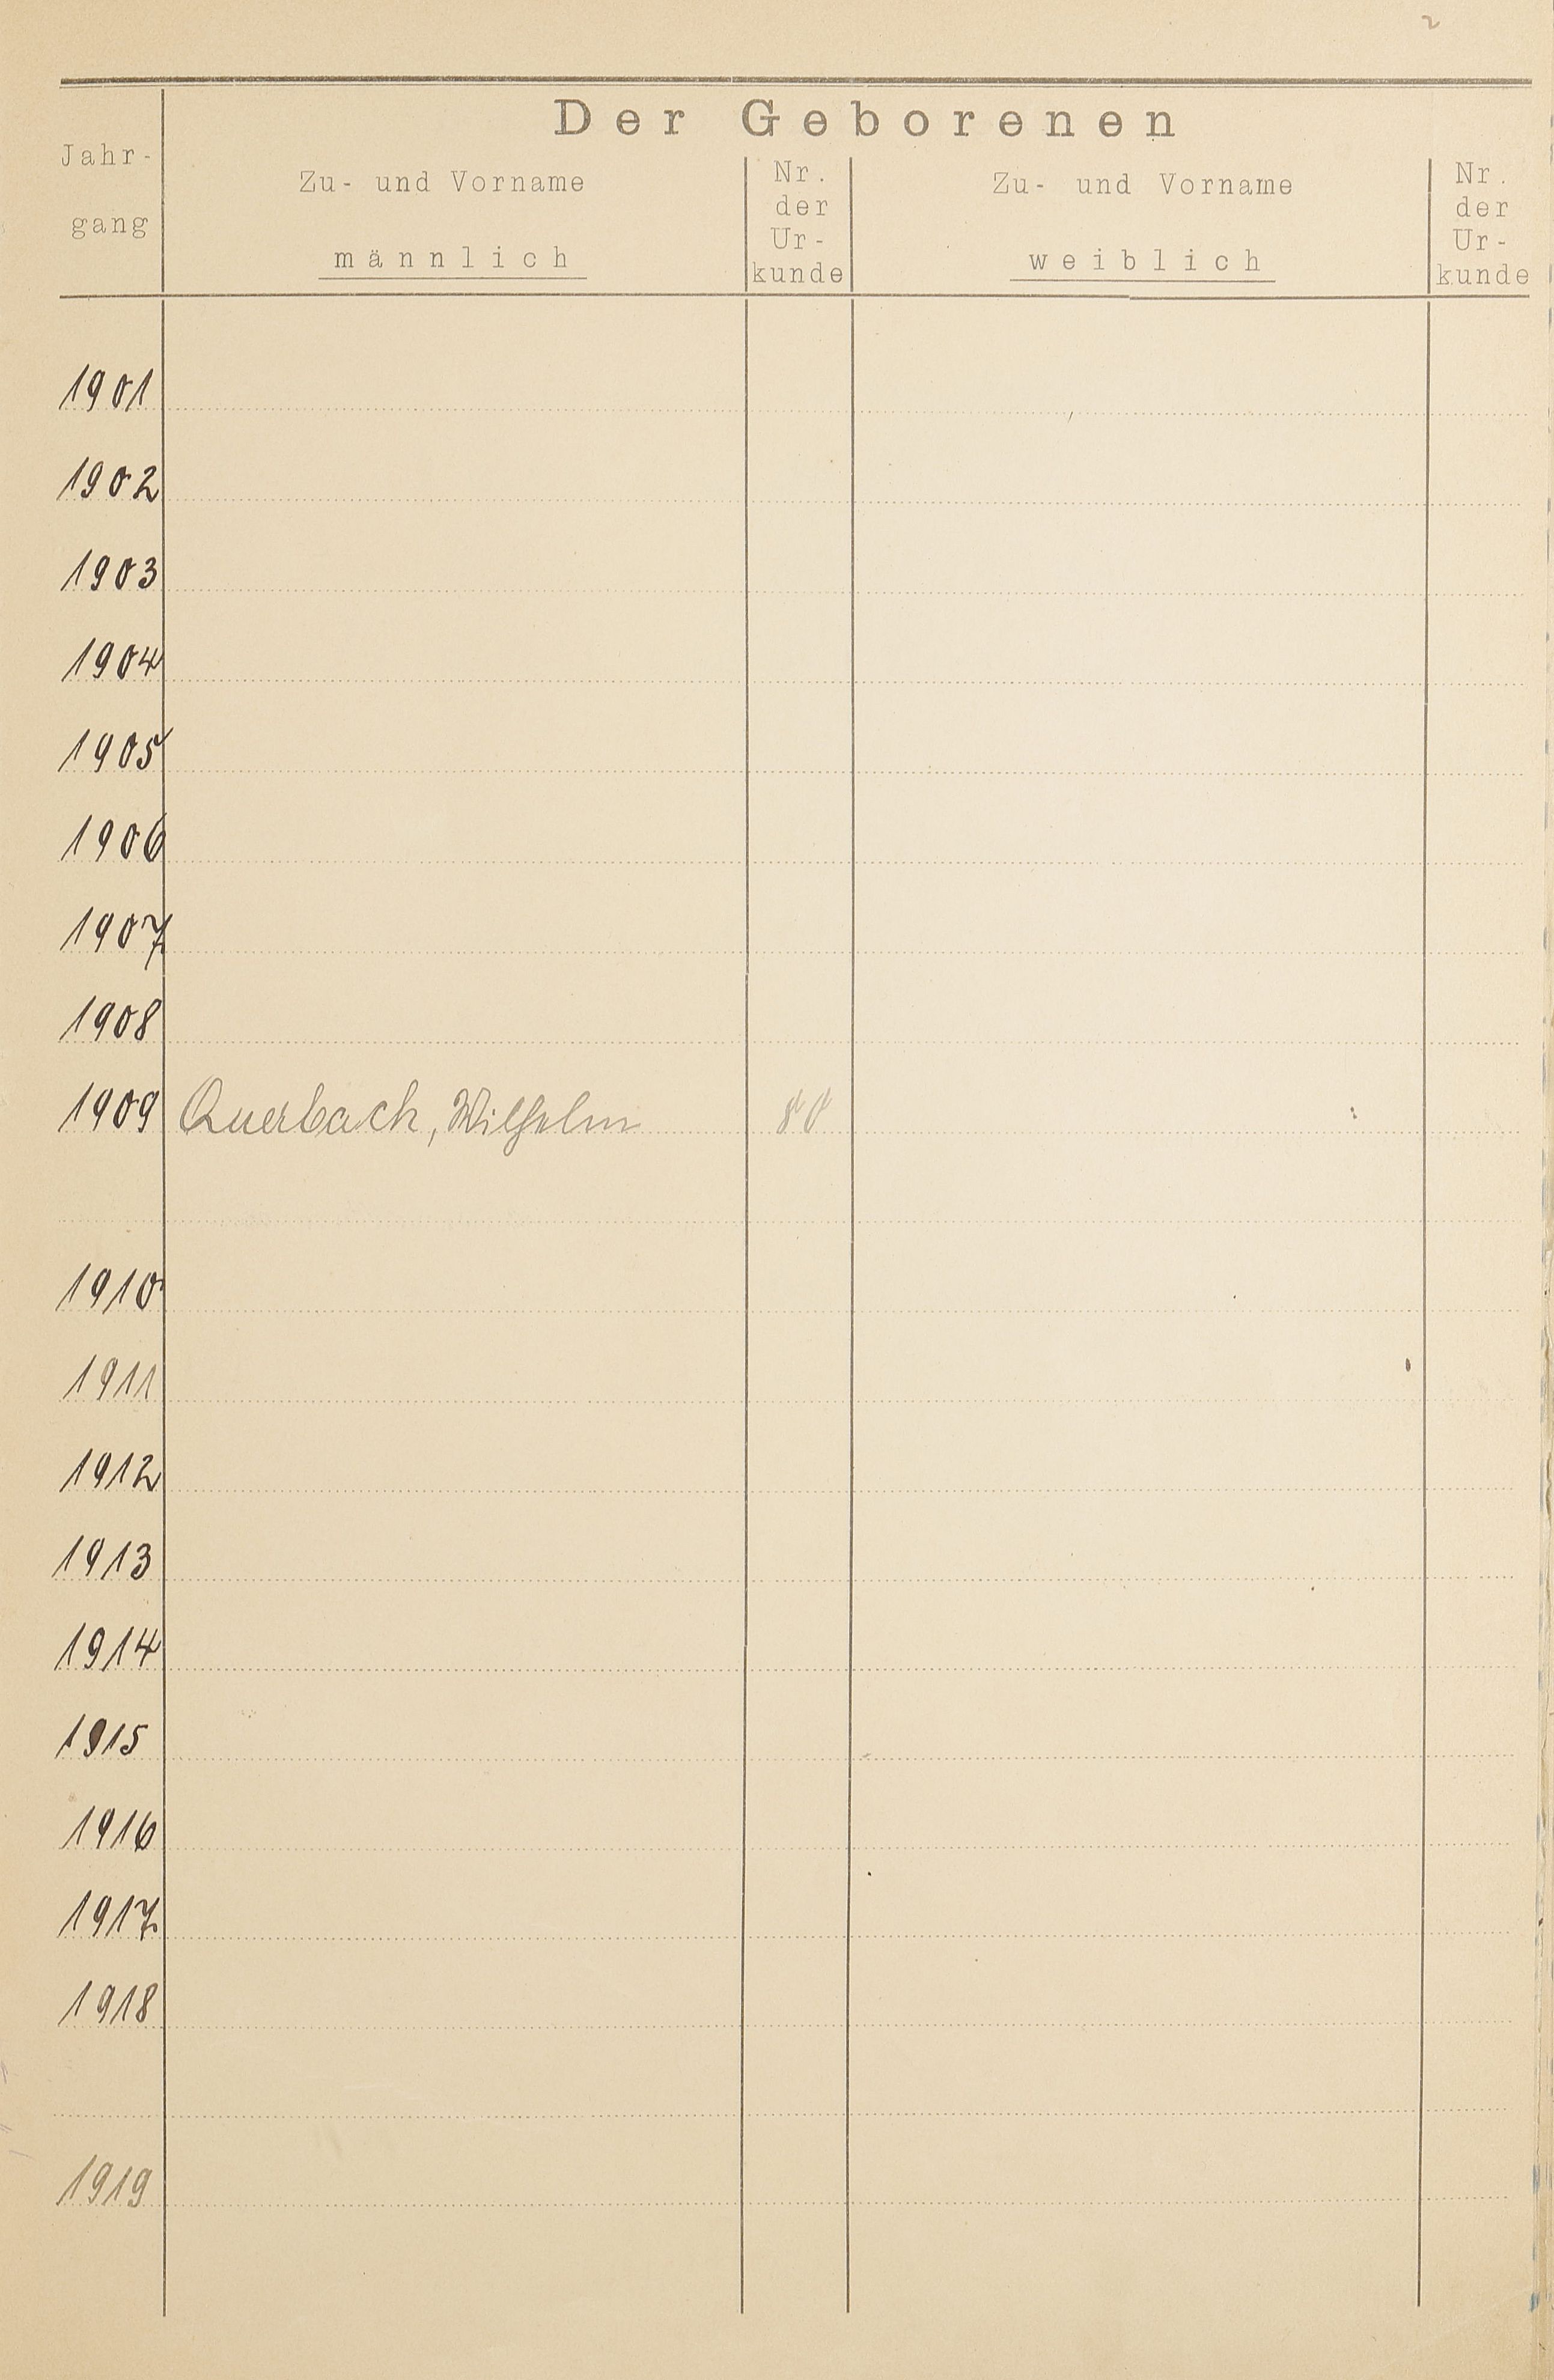 2
Der Geborenen
Jahr-
gang
Zu- und Vorname
männlich
Nr.
der
Ur-
kunde
Zu- und Vorname
weiblich
Nr.
der
Ur-
kunde
1901
1902
1903
1904
1905
1906
1907
1908
1909 Querbach, Wilhelm 80
1910
1911
1912
1913
1914
1915
1916
1917
1918
1919